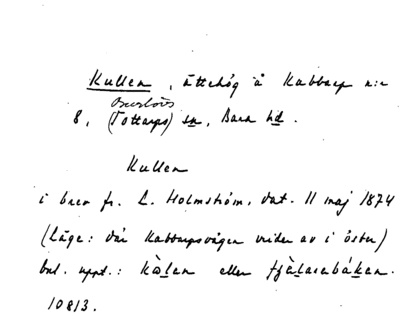 Kullen, ättehög å Kabbarp n:r
Burlövs
8, (Tottarps) sn, Bara hd.
Kullen
i brev fr. L. Holmström, dat. 11 maj 1874
(Läge: där Kabbarpsvägen vrider av i öster)
bel. uppt.: eller
10813.